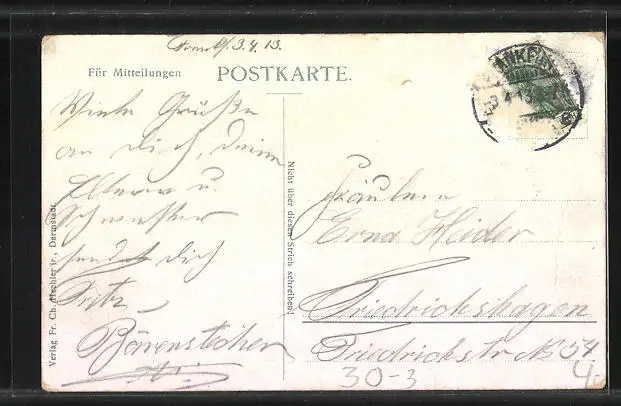 Frankf. 3.4.13.
Für Mitteilungen
POSTKARTE.
Viele Grüße
an Dich, Deine
Eltern u.
Schwester
sendet Dich
Fritz
Nicht über diesen Strich schreiben!
Fräulein
Erna Heider
Friedrichshagen
Friedrichstr No 54
30-3
4-
Verlag Fr. Ch. jr., Darmstadt.